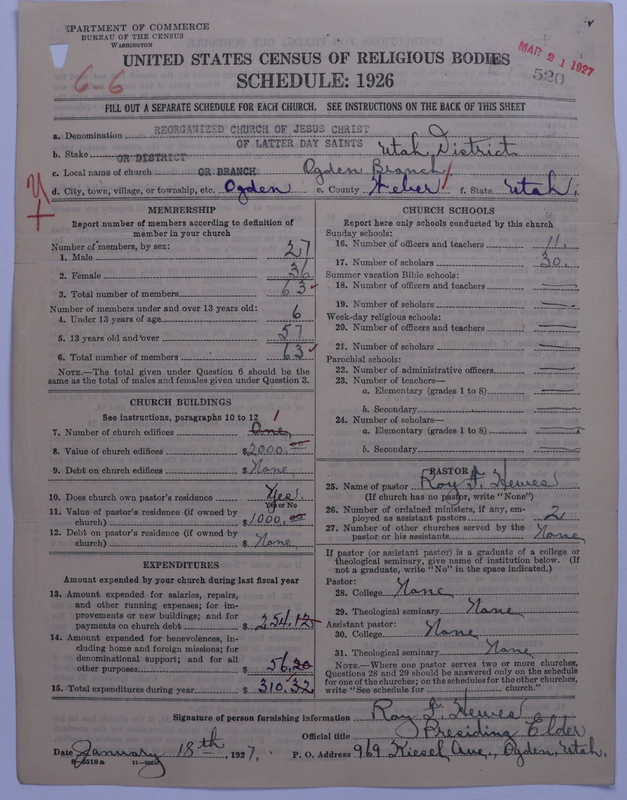 DEPARTMENT OF COMMERCE
BUREAU OF THE CENSUS
WASHINGTON
6-6
UNITED STATES CENSUS OF RELIGIOUS BODIES
SCHEDULE: 1926
MAR 21 1927
520
FILL OUT A SEPARATE SCHEDULE FOR EACH CHURCH. SEE INSTRUCTIONS ON THE BACK OF THIS SHEET
a. Denomination REORGANIZED CHURCH OF JESUS CHRIST
OF LATTER DAY SAINTS
b. Stake OR DISTRICT Utah District
c. Local name of church OR BRANCH Ogden Branch
d. City, town, village, or township, etc. Ogden e. County Weber f. State Utah.
MEMBERSHIP
Report number of members according to definition of
member in your church
Number of members, by sex:
1. Male 27
2. Female 36
3. Total number of members 63
Number of members under and over 13 years old:
4. Under 13 years of age 6
5. 13 years old and over 57
6. Total number of members 63
NOTE.—The total given under Question 6 should be the
same as the total of males and females given under Question 3.
CHURCH BUILDINGS
See instructions, paragraphs 10 to 12
7. Number of church edifices One 1
8. Value of church edifices $2000.00
9. Debt on church edifices $None
10. Does church own pastor's residence Yes.
Yes or No
11. Value of pastor's residence (if owned by
church) $1000.00
12. Debt on pastor's residence (if owned by
church) $None
EXPENDITURES
Amount expended by your church during last fiscal year
13. Amount expended for salaries, repairs,
and other running expenses; for im-
provements or new buildings; and for
payments on church debt $254.12
14. Amount expended for benevolences, in-
cluding home and foreign missions; for
denominational support; and for all
other purposes $56.20
15. Total expenditures during year $310.32
CHURCH SCHOOLS
Report here only schools conducted by this church
Sunday schools:
16. Number of officers and teachers 11.
17. Number of scholars 30.
Summer vacation Bible schools:
18. Number of officers and teachers
19. Number of scholars
Week-day religious schools:
20. Number of officers and teachers
21. Number of scholars
Parochial schools:
22. Number of administrative officers
23. Number of teachers—
a. Elementary (grades 1 to 8)
b. Secondary
24. Number of scholars—
a. Elementary (grades 1 to 8)
b. Secondary
PASTOR
25. Name of pastor Roy F. Hewes
(If church has no pastor, write "None")
26. Number of ordained ministers, if any, em-
ployed as assistant pastors 2
27. Number of other churches served by the
pastor or his assistants None
If pastor (or assistant pastor) is a graduate of a college or
theological seminary, give name of institution below. (If
not a graduate, write "No" in the space indicated.)
Pastor:
28. College None
29. Theological seminary None
Assistant pastor:
30. College None
31. Theological seminary None
NOTE.—Where one pastor serves two or more churches,
Questions 28 and 29 should be answered only on the schedule
for one of the churches; on the schedules for the other churches,
write "See schedule for church."
Signature of person furnishing information Roy F. Hewes
Official title Presiding Elder
Date January 18th, 1927. P. O. Address 969 Kiesel Ave., Ogden, Utah.